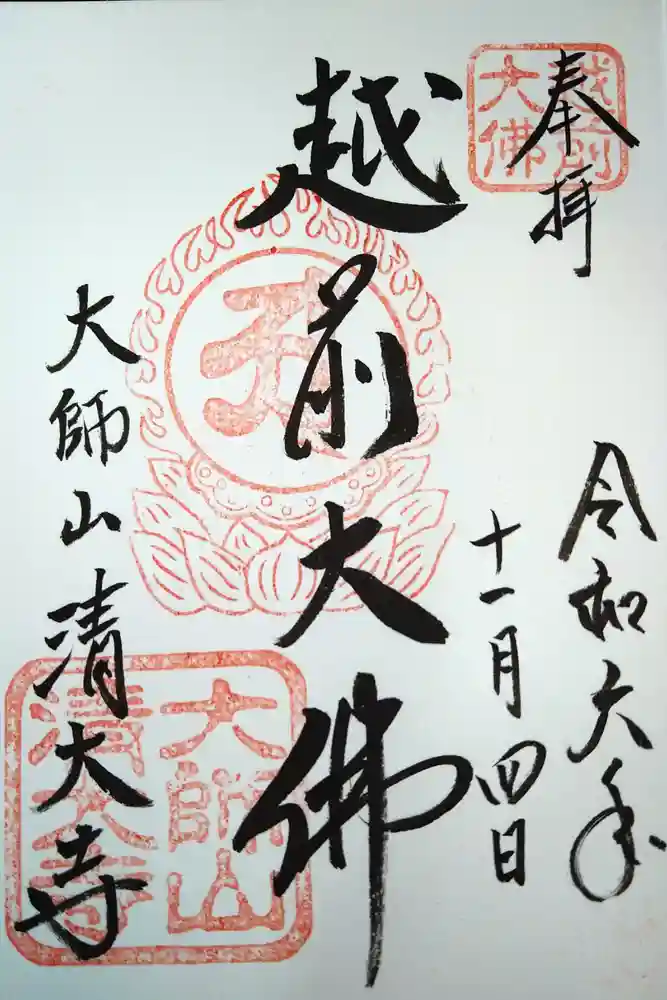 奉拝
越前
大佛
令和六年
十一月四日
越前大佛
大師山清大寺
大師山
清大寺